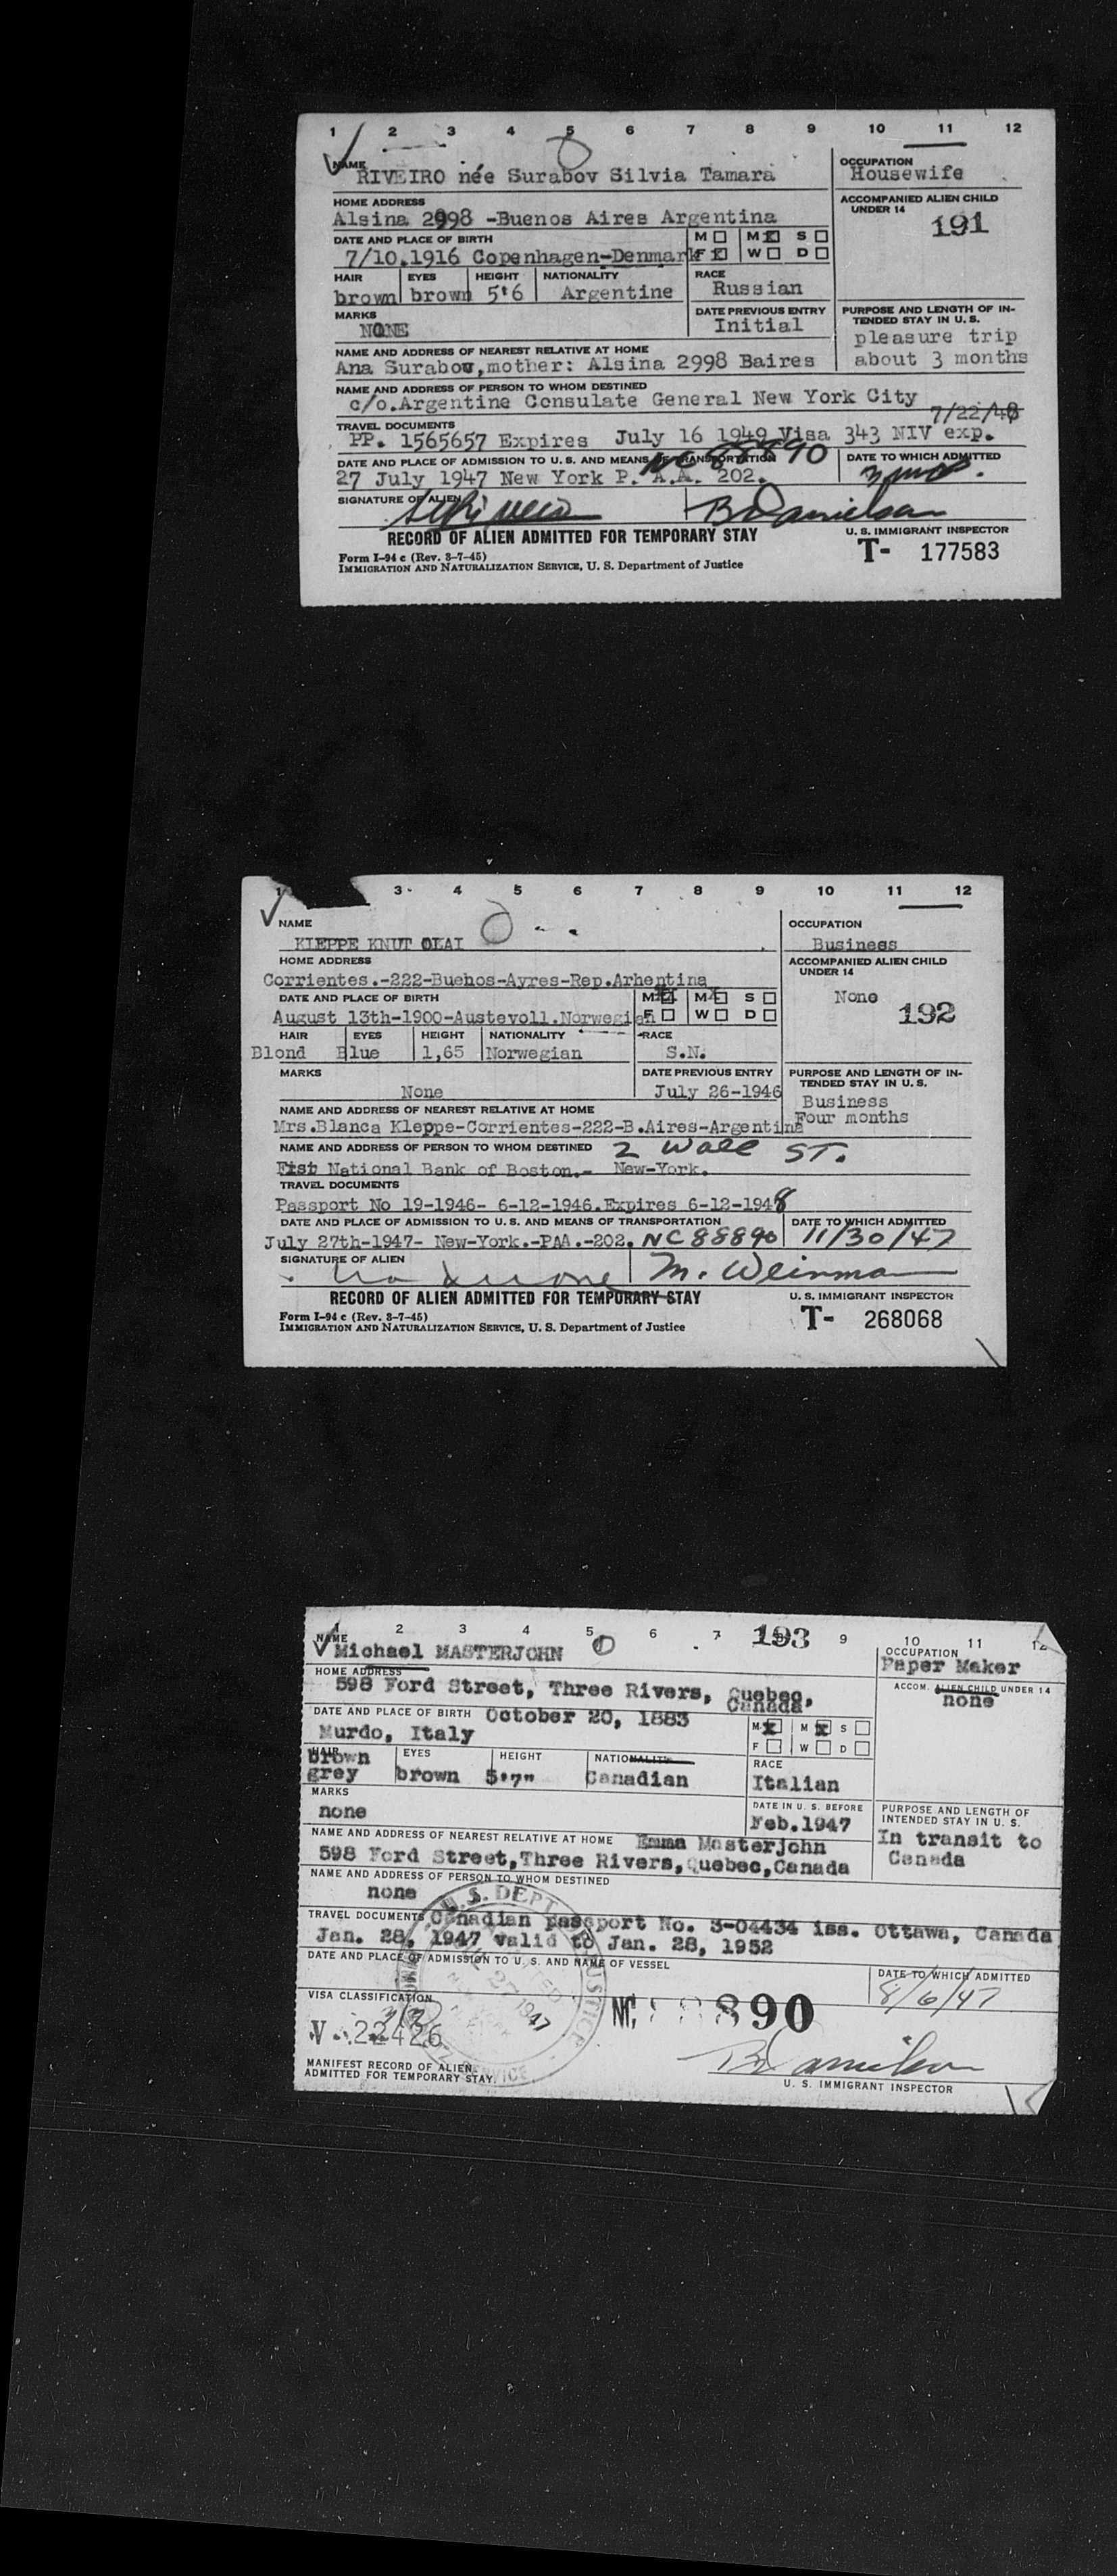 1 2 3 4 5 6 7 8 9 10 11 12
NAME
RIVEIRO née Surabov Silvia Tamara
OCCUPATION
Housewife
HOME ADDRESS
Alsina 2998 -Buenos Aires Argentina
ACCOMPANIED ALIEN CHILD
UNDER 14
191
DATE AND PLACE OF BIRTH
7/10.1916 Copenhagen-Denmark
M M S
F W D
HAIR EYES HEIGHT NATIONALITY RACE
brown brown 5'6 Argentine Russian
MARKS
NONE
DATE PREVIOUS ENTRY
Initial
PURPOSE AND LENGTH OF IN-
TENDED STAY IN U. S.
pleasure trip
about 3 months
NAME AND ADDRESS OF NEAREST RELATIVE AT HOME
Ana Surabov,mother: Alsina 2998 Baires
NAME AND ADDRESS OF PERSON TO WHOM DESTINED
c/o.Argentine Consulate General New York City
7/22/48
TRAVEL DOCUMENTS
PP. 1565657 Expires July 16 1949 Visa 343 NIV exp.
DATE AND PLACE OF ADMISSION TO U. S. AND MEANS OF TRANSPORTATION
NC 88890
DATE TO WHICH ADMITTED
27 July 1947 New York P. A.A. 202.
SIGNATURE OF ALIEN
B Danielson
RECORD OF ALIEN ADMITTED FOR TEMPORARY STAY
U. S. IMMIGRANT INSPECTOR
Form I-94 c (Rev. 3-7-45)
IMMIGRATION AND NATURALIZATION SERVICE, U. S. Department of Justice
T- 177583
1 3 4 5 6 7 8 9 10 11 12
NAME
KLEPPE KNUT OLAI
OCCUPATION
Business
HOME ADDRESS
Corrientes.-222-Buehos-Ayres-Rep.Arhentina
ACCOMPANIED ALIEN CHILD
UNDER 14
None
192
DATE AND PLACE OF BIRTH
August 13th-1900-Austevoll.Norwegian
M M S
F W D
HAIR EYES HEIGHT NATIONALITY RACE
Blond Blue 1,65 Norwegian S.N.
MARKS
None
DATE PREVIOUS ENTRY
July 26-1946
PURPOSE AND LENGTH OF IN-
TENDED STAY IN U. S.
Business
Four months
NAME AND ADDRESS OF NEAREST RELATIVE AT HOME
Mrs.Blanca Kleppe-Corrientes-222-B.Aires-Argentina
NAME AND ADDRESS OF PERSON TO WHOM DESTINED
2 Wall ST.
Fist National Bank of Boston.- New-York.
TRAVEL DOCUMENTS
Passport No 19-1946- 6-12-1946.Expires 6-12-1948
DATE AND PLACE OF ADMISSION TO U. S. AND MEANS OF TRANSPORTATION
DATE TO WHICH ADMITTED
July 27th-1947- New-York.-PAA.-202. NC 88890 11/30/47
SIGNATURE OF ALIEN
M. Weinman
RECORD OF ALIEN ADMITTED FOR TEMPORARY STAY
U. S. IMMIGRANT INSPECTOR
Form I-94 c (Rev. 3-7-45)
IMMIGRATION AND NATURALIZATION SERVICE, U. S. Department of Justice
T- 268068
1 2 3 4 5 6 7 193 9 10 11 12
NAME
Michael MASTERJOHN
OCCUPATION
Paper Maker
HOME ADDRESS
598 Ford Street, Three Rivers, Quebec,
Canada
ACCOM. ALIEN CHILD UNDER 14
none
DATE AND PLACE OF BIRTH October 20, 1883
Murdo, Italy
M M S
F W D
HAIR EYES HEIGHT NATIONALITY RACE
brown
grey brown 5'7" Canadian Italian
MARKS
none
DATE IN U. S. BEFORE
Feb.1947
PURPOSE AND LENGTH OF
INTENDED STAY IN U. S.
In transit to
Canada
NAME AND ADDRESS OF NEAREST RELATIVE AT HOME Emma Masterjohn
598 Ford Street,Three Rivers,Quebec,Canada
NAME AND ADDRESS OF PERSON TO WHOM DESTINED
none
U.S. DEPT JUSTICE
TRAVEL DOCUMENTS Canadian passport No. 3-04434 iss. Ottawa, Canada
Jan. 28, 1947 valid to Jan. 28, 1952
DATE AND PLACE OF ADMISSION TO U. S. AND NAME OF VESSEL
27 1947
DATE TO WHICH ADMITTED
8/6/47
VISA CLASSIFICATION
3(3)
V- 22426
NC 88890
B Danielson
MANIFEST RECORD OF ALIEN
ADMITTED FOR TEMPORARY STAY.
U. S. IMMIGRANT INSPECTOR